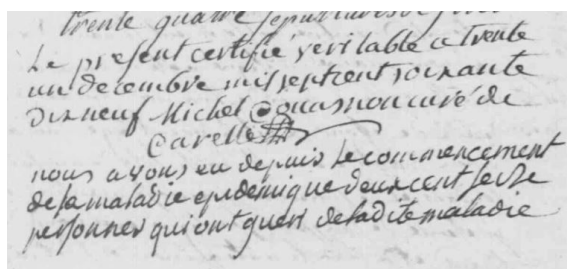 trente quatre sepultures
Le present certifié veritable ce trente
un decembre mil sept cent soixante
dix neuf Michel curé de
Carelle
nous avons eu depuis le commencement
de la maladie epidemique deux cent seize
personnes qui ont gueri de ladite maladie